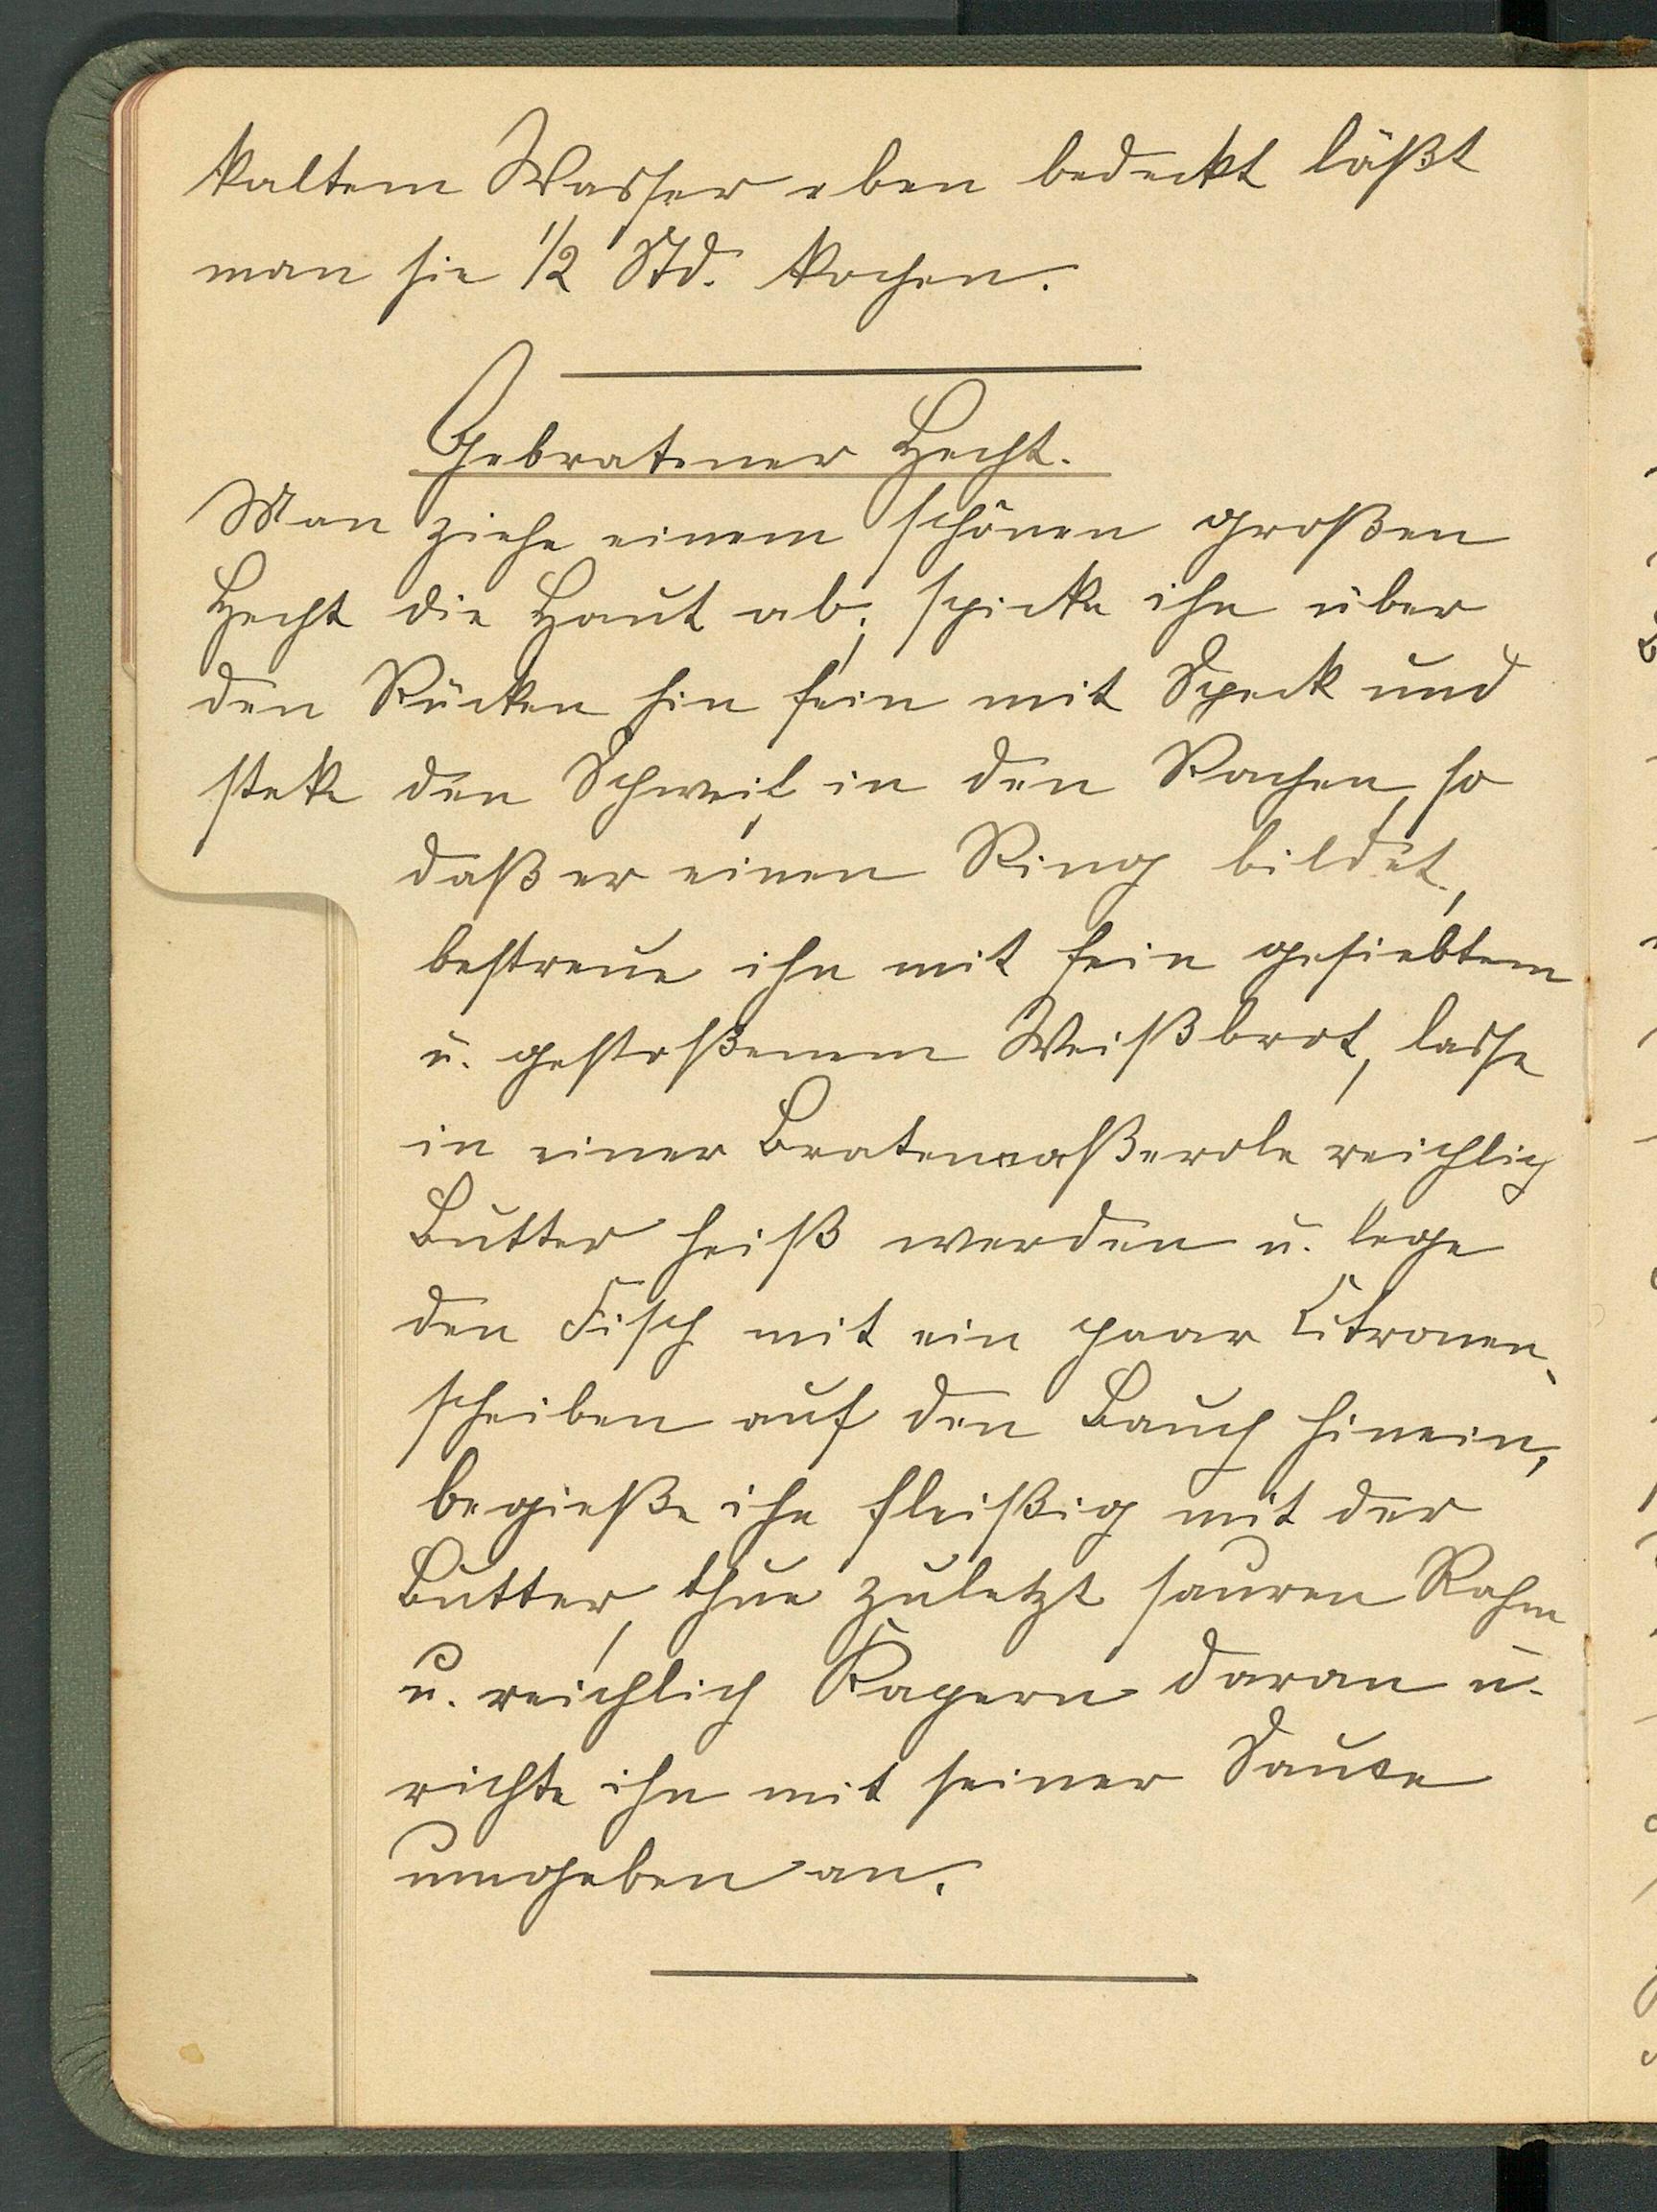 kaltem Wasser eben bedeckt läßt
man sie 1/2 Std. kochen.
Gebratener Hecht.
Man ziehe einem schönen großen
Hecht die Haut ab, spicke ihn über
den Rücken hin fein mit Speck und
steke den Schweif in den Rachen, so
daß er einen Ring bildet,
bestreue ihn mit fein gesiebtem
u. gestoßenem Weißbrot, lasse
in einer Bratenkaßerole reichlich
Butter heiß werden u. lege
den Fisch mit ein paar Citronen-
scheiben auf den Bauch hinein,
begieße ihn fleißig mit der
Butter, thue zuletzt sauren Rahm
u. reichlich Kapern daran u.
richte ihn mit seiner Sauce
umgeben an.